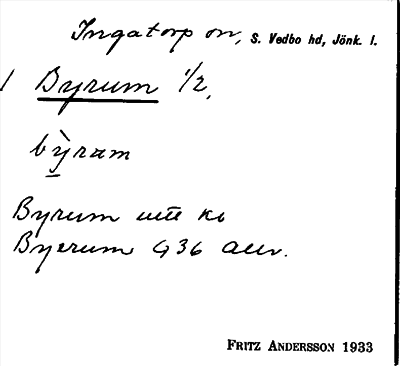 Ingatorp sn, S. Vedbo hd, Jönk. l.
1 Byrum 1/2,
bỳram
Byrum utt kb
Byerum G 36 allv.
FRITZ ANDERSSON 1933